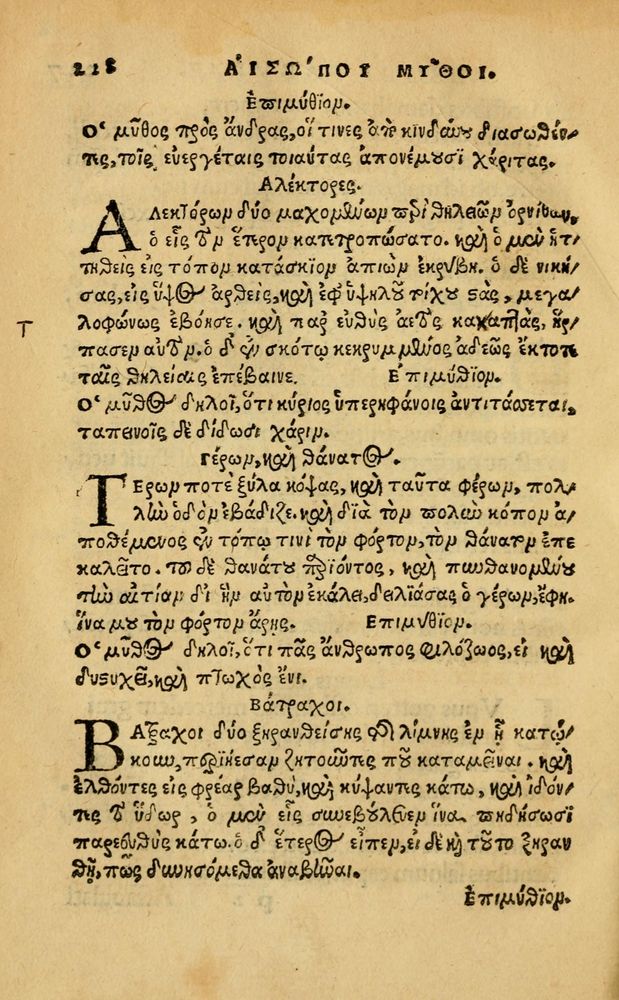 228 ΑΙΣΩΠΟΥ ΜΥΘΟΙ.
Ἐπιμύθιον.
Ὁ μῦθος πρὸς ἄνδρας, οἵ τινες ἀπὸ κινδύνου διασωθέν-
τες, τοῖς εὐεργέταις τοιαύτας ἀπονέμουσι χάριτας.
Ἀλέκτορες.
ΑΛεκτόρων δύο μαχομένων περὶ θηλειῶν ὀρνίθων,
ὁ εἷς τὸν ἕτερον κατετροπώσατο. καὶ ὁ μὲν ἡτ-
τηθεὶς εἰς τόπον κατάσκιον ἀπιὼν ἐκρύβη. ὁ δὲ νική-
σας, εἰς ὕψος ἀρθεὶς, καὶ ἐφ' ὑψηλοῦ τοίχου στὰς, μεγα-
λοφώνως ἐβόησε. καὶ παρευθὺς ἀετὸς καταπτὰς, ἥρ-
τ
πασεν αὐτόν. ὁ δ' ἐν σκότῳ κεκρυμμένος ἀδεῶς ἔκτοτε
ταῖς θηλείαις ἐπέβαινε. Ἐπιμύθιον.
Ὁ μῦθος δηλοῖ, ὅτι κύριος ὑπερηφάνοις ἀντιτάσσεται,
ταπεινοῖς δὲ δίδωσι χάριν.
Γέρων, καὶ θάνατος.
ΓΕρων ποτὲ ξύλα κόψας, καὶ ταῦτα φέρων, πολ-
λὴν ὁδὸν ἐβάδιζε. καὶ διὰ τὸν πολὺν κόπον ἀ-
ποθέμενος ἐν τόπῳ τινὶ τὸν φόρτον, τὸν θάνατον ἐπε
καλεῖτο. τοῦ δὲ θανάτου προϊόντος, καὶ πυνθανομένου
τὴν αἰτίαν δι' ἣν αὐτὸν ἐκάλει, δειλιάσας ὁ γέρων, ἔφη.
ἵνα μου τὸν φόρτον ἄρῃς. Ἐπιμύθιον.
Ὁ μῦθος δηλοῖ, ὅτι πᾶς ἄνθρωπος φιλόζωος, εἰ καὶ
δυστυχεῖ, καὶ πτωχὸς ἔνι.
Βάτραχοι.
ΒΑτραχοι δύο ξηρανθείσης τῆς λίμνης ἐν ᾗ κατῴ-
κουν, περιῄεσαν ζητοῦντες ποῦ καταμεῖναι. καὶ
ἐλθόντες εἰς φρέαρ βαθὺ, καὶ κύψαντες κάτω, καὶ ἰδόν-
τες τὸ ὕδωρ, ὁ μὲν εἷς συνεβούλευεν ἵνα πηδήσωσι
παρευθὺς κάτω. ὁ δ' ἕτερος εἶπεν, εἰ δὲ καὶ τοῦτο ξηραν
θῇ, πῶς δυνησόμεθα ἀναβῆναι.
Ἐπιμύθιον.